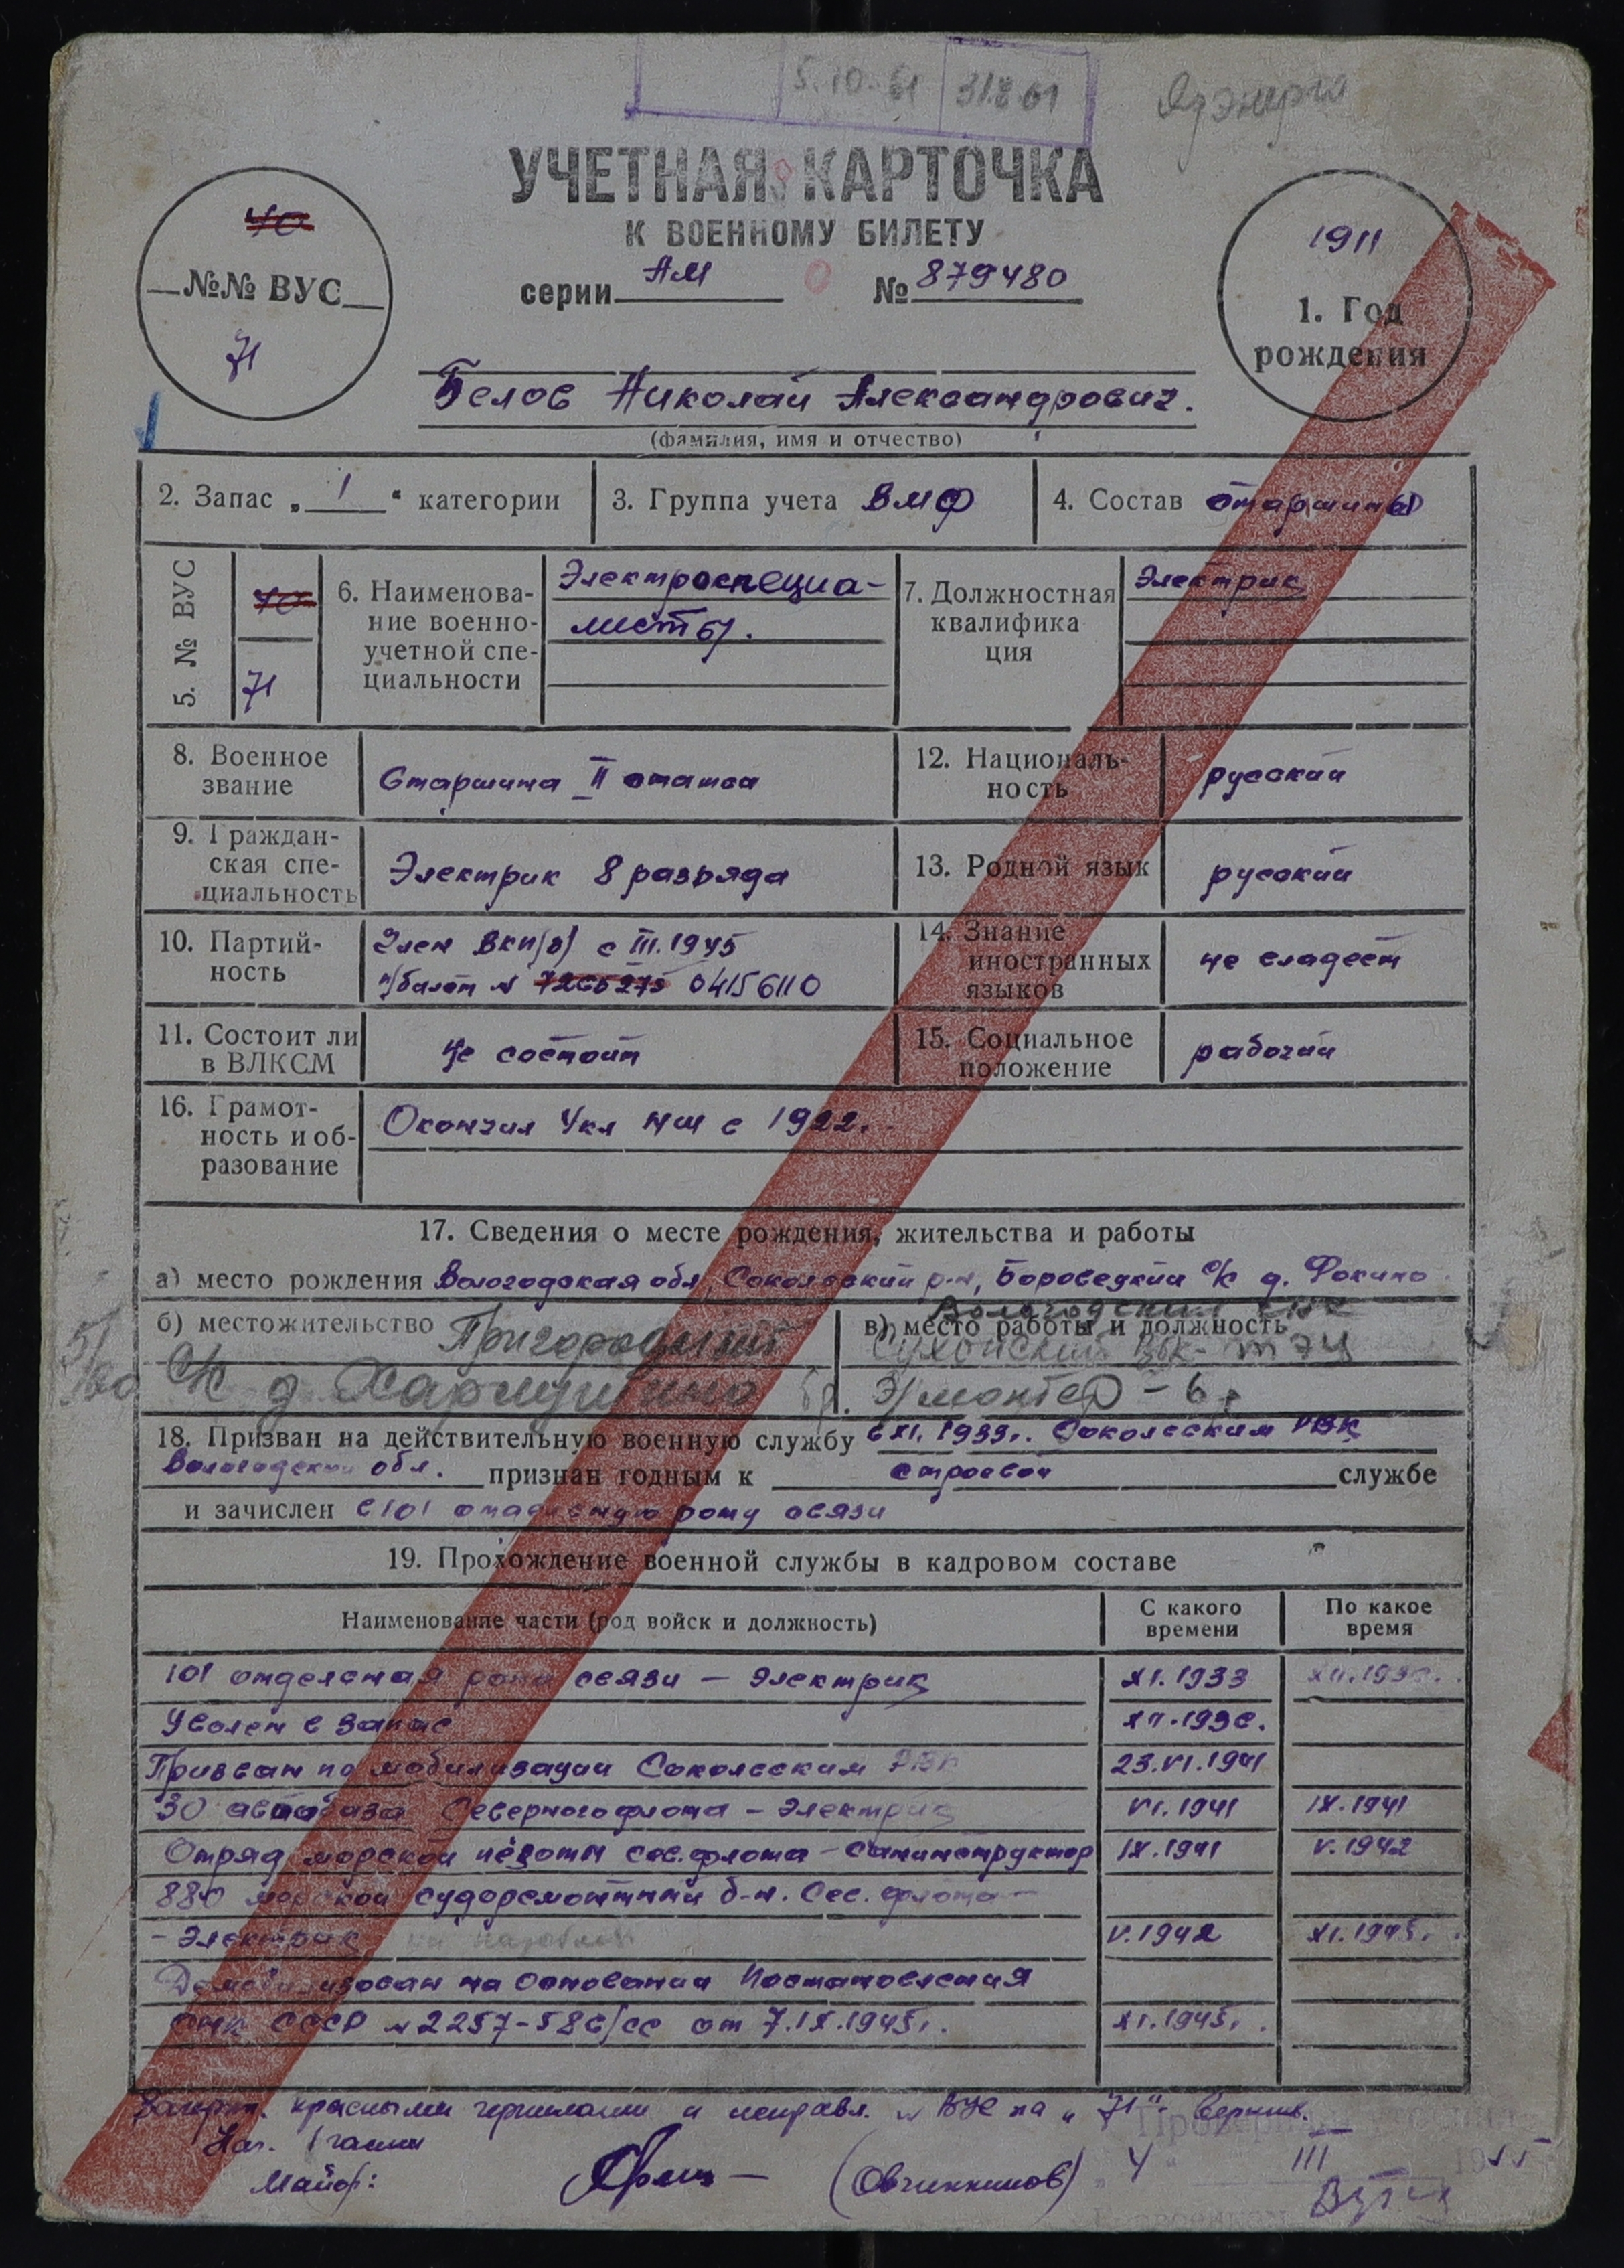 5.10.61 31.8.61
УЧЕТНАЯ КАРТОЧКА
К ВОЕННОМУ БИЛЕТУ
серии АМ № 879480
70
№№ ВУС
71
1911
1. Год
рождения
Белов Николай Александрович.
(фамилия, имя и отчество)
2. Запас „ 1 “ категории
3. Группа учета ВМФ
4. Состав старшины
5. № ВУС
70
71
6. Наименова-
ние военно-
учетной спе-
циальности
Электроспециа-
листы.
7. Должностная
квалифика
ция
Электрик
8. Военное
звание
Старшина II статьи
12. Националь-
ность
русский
9. Граждан-
ская спе-
циальность
Электрик 8 разряда
13. Родной язык
русский
10. Партий-
ность
Член ВКП(б) с III.1945
п/билет № 7266275 04156110
14. Знание
иностранных
языков
не владеет
11. Состоит ли
в ВЛКСМ
не состоит
15. Социальное
положение
рабочий
16. Грамот-
ность и об-
разование
Окончил 4кл НШ в 1922.
17. Сведения о месте рождения, жительства и работы
а) место рождения Вологодская обл, Сокольский р-н, Боровецкий с/с д. Фокино
б) местожительство Пригородный
с/с д.
в) место работы и должность
Сухонский ЦБК- ТЭЦ
Э/монтер - 6 р
18. Призван на действительную военную службу 6 XI. 1933г. Сокольским РВК
Вологодской обл. признан годным к строевой службе
и зачислен в 101 отдельную роту связи
19. Прохождение военной службы в кадровом составе
Наименование части (род войск и должность)
С какого
времени
По какое
время
101 отдельная рота связи — электрик XI.1933 XII.1936.
Уволен в запас XII.1936.
Призван по мобилизации Сокольским РВК 23.VI.1941
30 автобаза Северного флота — электрик VI.1941 IX.1941
Отряд морской пехоты Сев.флота — санинструктор IX.1941 V.1942
880 морской судоремонтный б-н. Сев. флота —
- Электрик V.1942 XI.1945.
Демобилизован на основании Постановления
СНК СССР № 2257-586/сс от 7.IX.1945г. XI.1945г.
Зачеркн. красными чернилами и исправл. № ВУС на „71“ верить.
Нач. I части
Майор: (Овчинников) „4“ III 1955